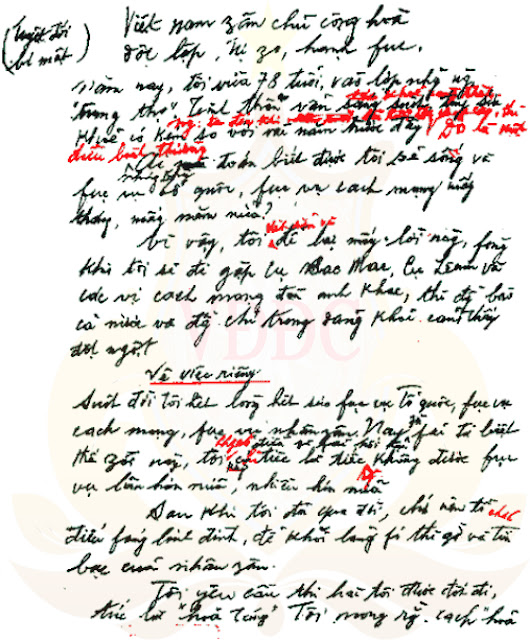 (Tuyệt đối
bí mật)
Việt nam zân chủ cộng hoà
độc lập, tự zo, hạnh fúc.
Năm nay, tôi vừa 78 tuổi, vào lớp những người
"trung thọ". Tinh thần vẫn sáng suốt, tuy sức
khoẻ có kém so với vài năm trước đây
điều bình thường.
toán biết được tôi sẽ sống và
fục vụ tổ quốc, fục vụ cách mạng mấy
tháng, mấy năm nữa?
Vì vậy, tôi để lại mấy lời này, fòng
khi tôi sẽ đi gặp cụ Các Mác, cụ Lenin và
các vị cách mạng đàn anh khác, thì đồng bào
cả nước và đồng chí trong đảng khỏi cảm thấy
đột ngột.
Về việc riêng
Suốt đời tôi hết lòng hết sức fục vụ Tổ quốc, fục vụ
cách mạng, fục vụ nhân zân. Nay zù fải từ biệt
thế zới này, tôi không có điều gì fải hối hận,
chỉ tiếc là tiếc không được fục
vụ lâu hơn nữa, nhiều hơn nữa
Sau khi tôi đã qua đời, chớ nên tổ chức
điếu fúng linh đình, để khỏi lãng fí thì zờ và tiền
bạc của nhân zân.
Tôi yêu cầu thi hài tôi được đốt đi,
tức là "hoả táng". Tôi mong rằng cách "hoả
VDDC